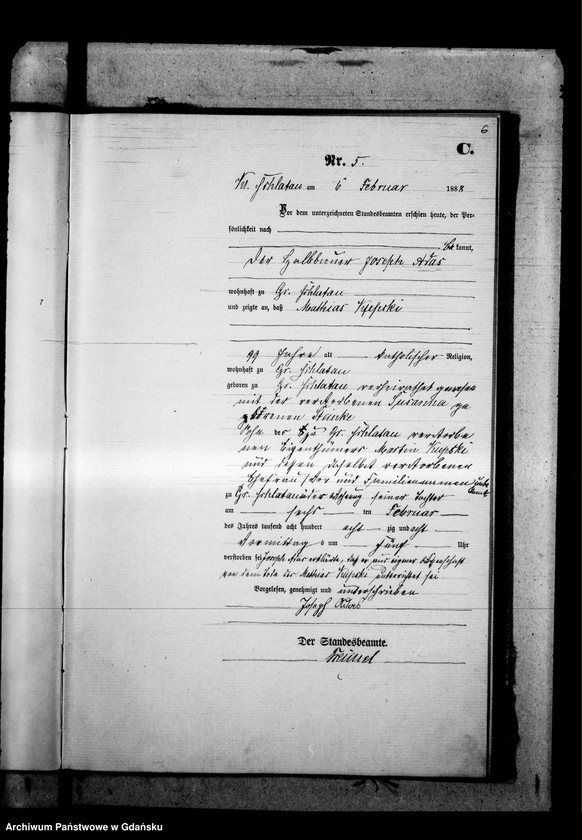 6
C.
Nr. 5.
Kl. Schlatau am 6 Februar 1888
Vor dem unterzeichneten Standesbeamten erschien heute, der Per-
sönlichkeit nach
be kannt,
der Halbbauer Joseph Adas
wohnhaft zu Gr. Schlatau
und zeigte an, daß Mathias
99 Jahre alt katholischer Religion,
wohnhaft zu Gr. Schlatau
geboren zu Gr. Schlatau verheirathet gewesen
mit der verstorbenen Susanna ge
borenen
Sohn des zu Gr. Schlatau verstorbe
nen Eigenthümers Martin
und dessen daselbst verstorbenen
Ehefrau Vor und Familiennamen
zu Gr. Schlatau in der Wohnung seiner Tochter
am sechs ten Februar
des Jahres tausend acht hundert acht zig und acht
Vormittag s um fünf Uhr
verstorben sei Joseph Adas erklärte, daß er aus eigner Wissenschaft
von dem Tode des Mathias unterrichtet sei
Vorgelesen, genehmigt und unterschrieben
Joseph Adas
Der Standesbeamte.
Archiwum Państwowe w Gdańsku